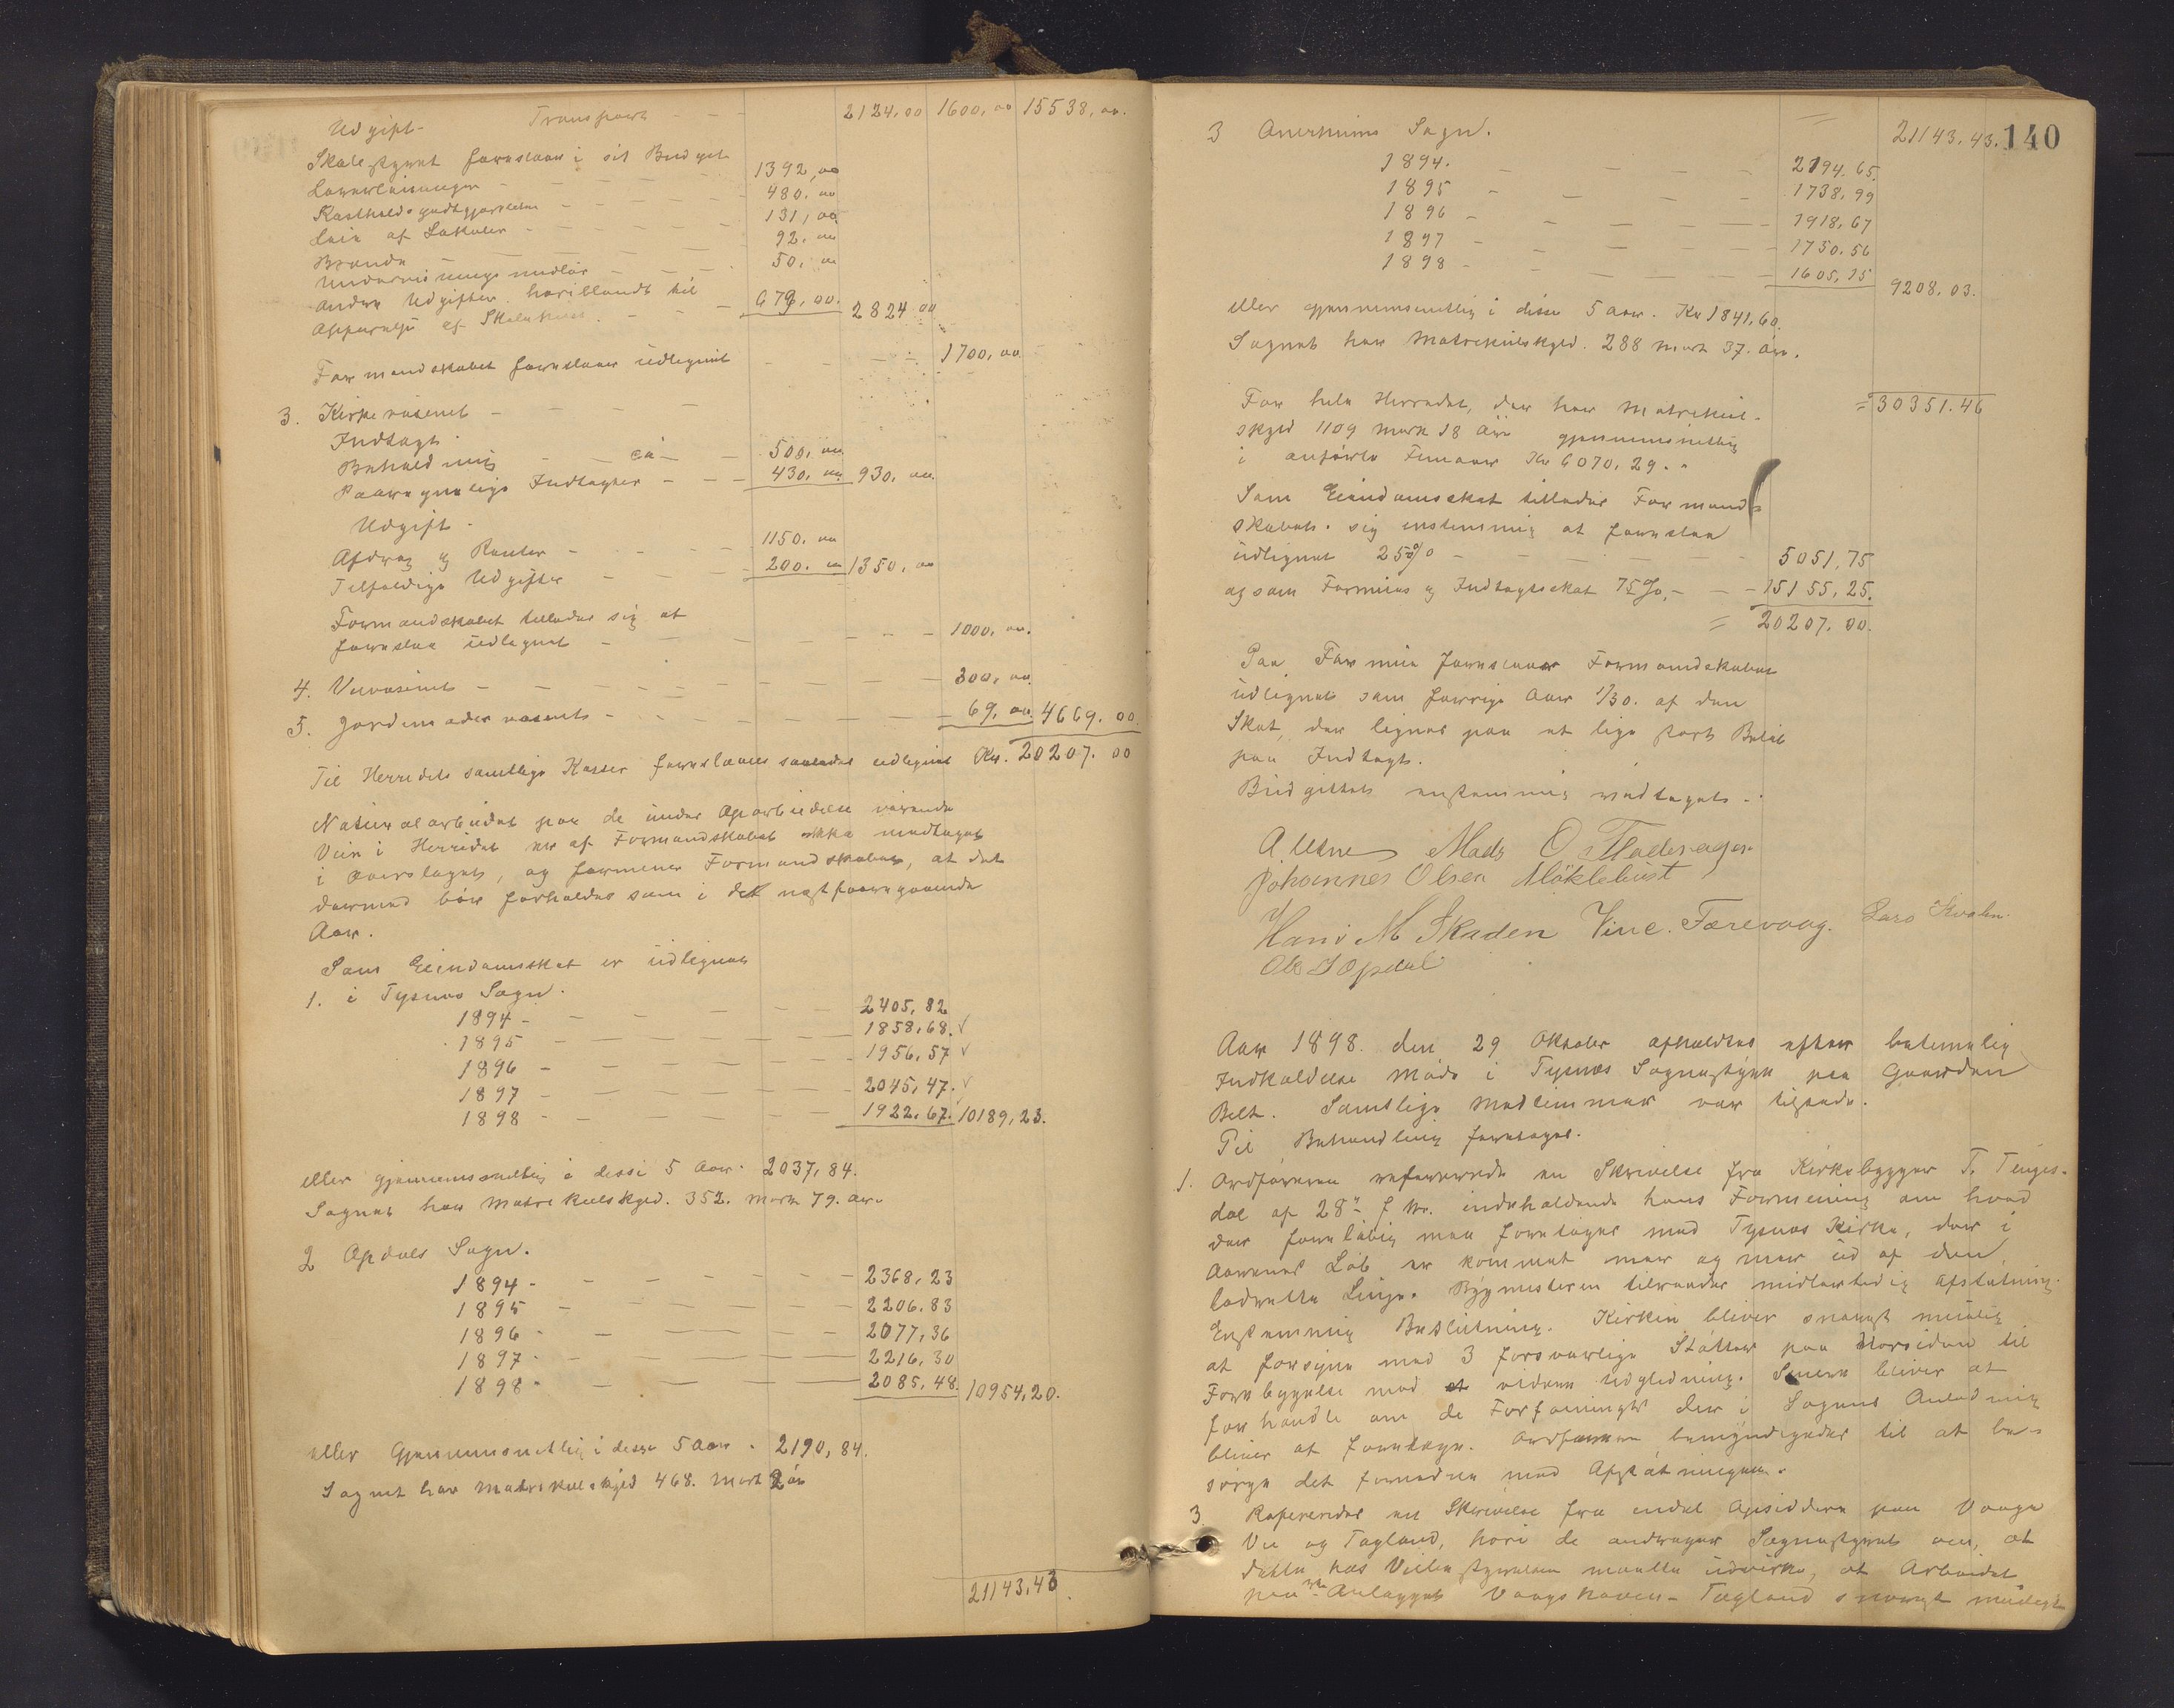 Udgift. Transport 2124,00 1600,00 15538,00.
Skolestyret foreslaar i sit Budget
Lærerlønninger 1392,00
Kostholdsgodtgjørelse 480,00
Leie af Lokaler 131,00
Brænde 92,00
Undervisningsmidler 50,00
andre Udgifter, heriblandt til
Skolehus 679,00. 2824,00
Formandskabet foreslaar udlignet 1700,00
3. Kirkevæsenet
Indtægt.
Beholdning ca 500,00
Paaregnelige Indtægter 430,00. 930,00.
Udgift.
Afdrag og Renter 1150,00
Tilfældige Udgifter 200,00 1350,00
Formandskabet tillader sig at
foreslaa udlignet 1000,00.
4. Veivæsenet 300,00.
5. Jordemodervæsenet 69,00. 4669.00.
Til Herredets samtlige Kasser foreslaaes saaledes udlignet Kr. 20207.00
Naturalarbeidet paa de under Oparbeidelse værende
Veie i Herredet er af Formandskabet ikke medtaget
i Overslaget, og formener Formandskabet, at det
dermed bør forholdes som i det næstforegaaende
Aar.
Som Eiendomsskat er udlignet
1. i Tysnæs Sogn.
1894 2405,82
1895 1858,68.
1896 1956,57
1897 2045,47.
1898 1922,67. 10189,23.
eller gjennemsnitlig i disse 5 Aar. 2037,84.
Sognet har Matrikulskyld. 352. mark 79. øre.
2 Opdals Sogn.
1894 2368,23
1895 2206.83
1896 2077,36
1897 2216,30
1898 2085,48. 10954,20.
eller Gjennemsnitlig i disse 5 Aar. 2190,84.
Sognet har Matrikulskyld 468. Mark 2 øre
21143,43.
140
21143,43.
3 Onarheims Sogn.
1894. 2194.65.
1895 1738,99
1896 1918,67
1897 1750.56
1898 1605,15 9208,03.
eller gjennemsnitlig i disse 5 Aar. Kr 1841,60.
Sognet har Matrikulskyld. 288 mark 37. øre.
For hele Herredet, der har Matrikul- = 30351.46
skyld 1109 mark 18 øre gjennemsnitlig
i anførte Femaar Kr 6070,29.
Som Eiendomsskat tillader Formand-
skabet sig enstemmig at foreslaa
udlignet 25% 5051,75
og som Formues og Indtægtsskat 75%, 15155,25.
= 20207.00.
Paa Formue foreslaaes Formandskabet
udlignet som forrige Aar 1/30. af den
Skat, der lignes paa et lige stort Beløb
paa Indtægt.
Budgettet enstemmig vedtaget.
Mads O Fladesager
Johannes Olsen Møklebust
Hans M Skaden Vinc. Færevaag. Lars Kvalen.
Ole J Opdal
Aar 1898. den 29 Oktober afholdtes efter betimelig
Indkaldelse Møde i Tysnæs Sognestyre paa Gaarden
Belt. Samtlige Medlemmer var tilstede.
Til Behandling foretoges.
1. Ordføreren refererede en Skrivelse fra Kirkebygger T. Tenges-
dal af 28de f. M. indeholdende hans Formening om hvad
der foreløbig maa foretages med Tysnæs Kirke, der i
Aarenes Løb er kommet mer og mer ud af den
lodrette Linje. Bygmesteren tilraader midlertidig Afstøtning.
Enstemmig Beslutning. Kirken bliver snarest mulig
at forsyne med 3 forsvarlige Støtter paa Norsiden til
Forebyggelse mod videre Udglidning. Senere bliver at
forhandle om de Forføininger der i Sagens Anledning
bliver at foretage. Ordføreren bemyndigedes til at be-
sørge det fornødne med Afstøtningen.
3. Refereredes en Skrivelse fra endel Opsiddere paa Vaage
Vie og Tægland, hvori de andrager Sognestyret om, at
dette hos Veibestyrelsen maatte udvirke, at Arbeidet
paa Anlægget Vaagshavn - Tægland snarest muligt